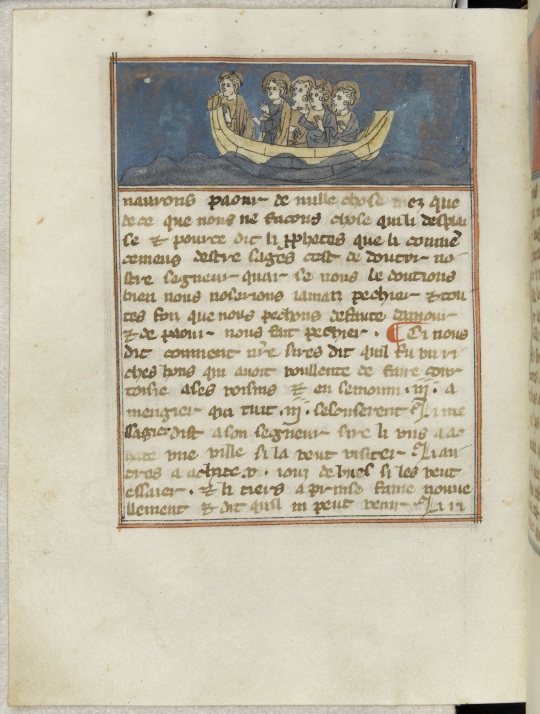 naurons paour de nulle chose mez que
de ce que nous ne facons chose qui li desplai
se et pource dit li prphetes que li comme
cemens destre sages cest de doutor no
stre segneur quar se nous le doutions
bien nous noserions iamaiz pechier et tou
tes fon que nous pechons defaute damour
et de paour nous fait pechier . Ci nous
dit comment nre sires dit quil fu un ri
ches hons qui auoit voullente de faire cour
toisie a ses voisins et en semonni .iii. a
mengier qui tuit .iii. sescuserent Li me
ssagier dist a son segneur sire li uns a ac
hate une ville si la veut visiter Li au
tres a achite .v. iour de bues si les veut
essaier . et li tiers a prinse fame nouue
llement et dit quil ni peut venir Li ri